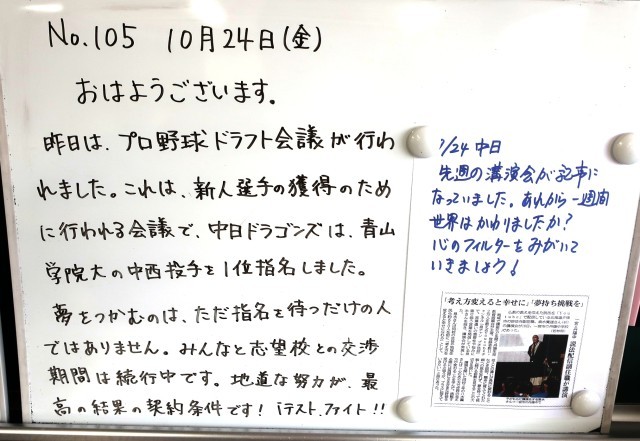 No.105 10月24日(金)
おはようございます。
昨日は、プロ野球ドラフト会議が行わ
れました。これは、新人選手の獲得のため
に行われる会議で、中日ドラゴンズは、青山
学院大の中西投手を1位指名しました。
夢をつかむのは、ただ指名を待っだけの人
ではありません。みんなと志望校との交渉
期間は続行中です。地道な努力が、最
高の結果の契約条件です!iテスト、ファイト!!
/24 中日
先週の講演会が記事に
なっていました。あれから一週間
世界はかわりましたか?
心のフィルターをみがいて
いきましょう!
「考え方変えると幸せに」「夢持ち挑戦を」